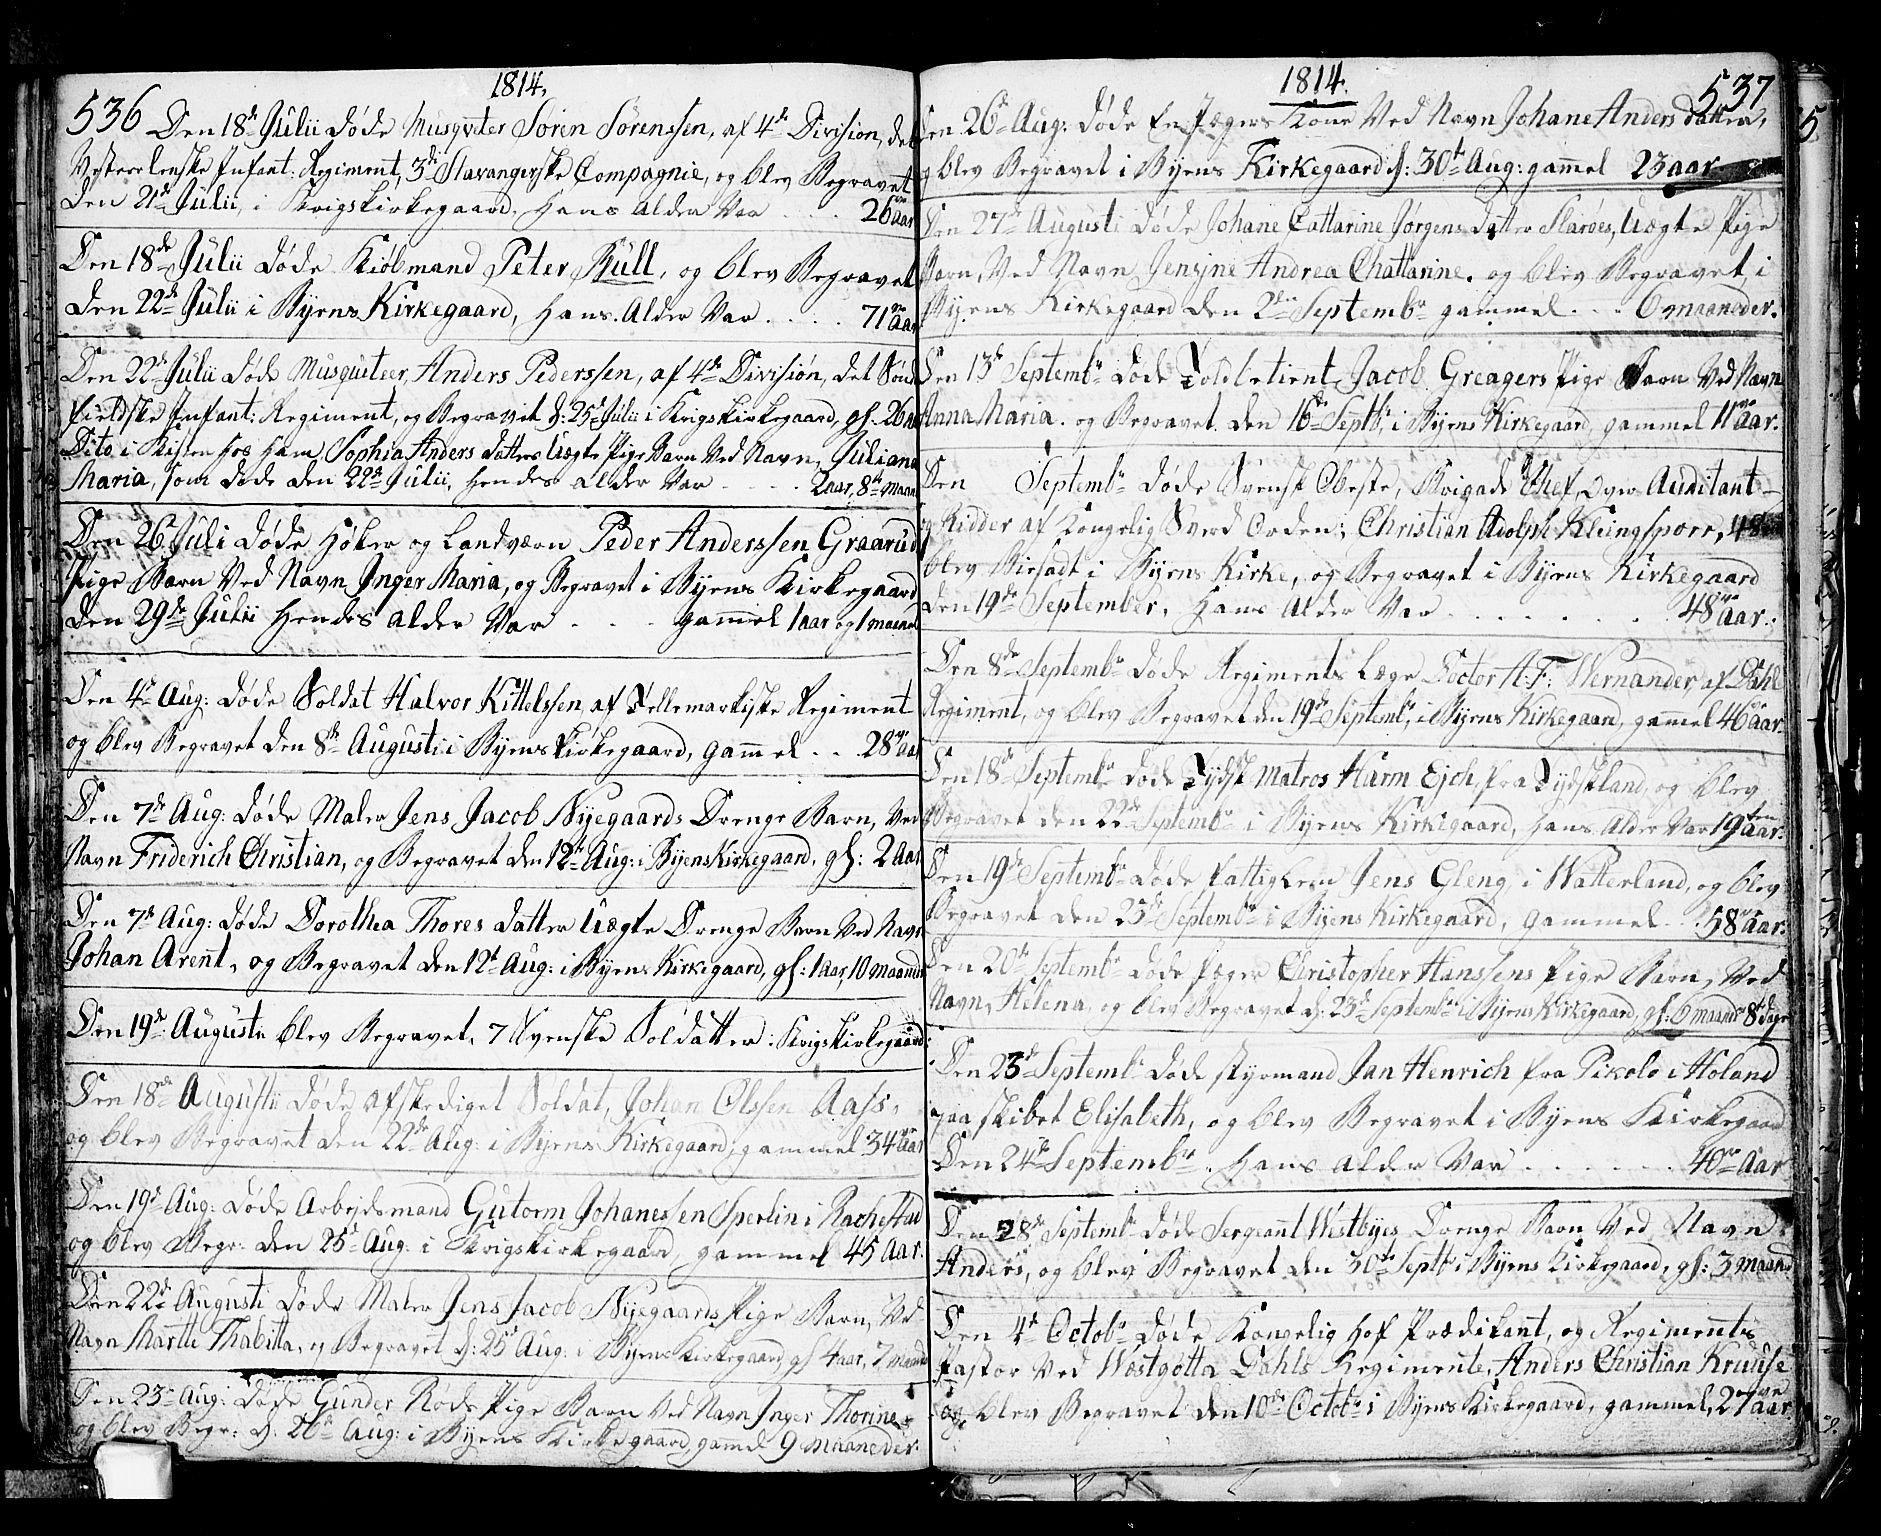 536
1814.
Den 18de Julii Døde Musqveter Sorin Sörenssen, af 4de Division, det
Vesterlenske Infant: Regiment, 3die Stavangerske Compagnie, og blev Begravet
Den 21de Julii, i Krigskirkegaard. Hans Alder Var . . . . 26 aar
Den 18de Julii Døde Kiöbmand Peter Büll, og blev Begravet
Den 22de Julii i Byens Kirkegaard, Hans Alder Var . . . . 71 Aar
Den 22de Julii Døde Musqueteer Anders Pederssen, af 4de Division, det Sönd
fieldske Infant: Regiment, og Begravet d: 25de Julii i Krigskirkegaard, gl: 26 aar
Dito i Kisten hos ham Sophia Anders datters Uægte Pige Barn Ved Navn, Juliana
Maria, som døde den 22de Julii, hendes alder Var . . . . 2 aar, 8te maan
Den 26 Juli døde Höker og Landværn Peder Anderssen Graarud
Pige Barn Ved Navn Inger Maria, og Begravet i Byens Kirkegaard
Den 29de Julii Hendes alder Var . . . gammel 1 aar og 1 maaned
Den 4de Aug: Døde Soldat Halvor Kittelssen af Tellemarkiske Regiment
og blev Begravet den 8de Augusti i Byens Kirkegaard, gammel . . 28 aar
Den 7de Aug: Døde Maler Jens Jacob Nyegaards Drenge Barn, Ved
Navn Friderich Christian, og Begravet den 12te Aug: i Byens Kirkegaard, gl: 2 Aar
Den 7de Aug: Døde Dorothea Thores datter Uægte Drenge Barn Ved Navn
Johan Arent, og Begravet den 12te Aug: i Byens Kirkegaard, gl: 1 aar, 10 maaneder
Den 19de Augusti blev Begravet, 7 Svenske Soldatter i Krigskirkegaard
Den 18de Augustii Døde afskediget Soldat, Johan Olssen Aass,
og blev Begravet den 22de Aug: i Byens Kirkegaard, gammel 34 aar
Den 19de Aug: Døde Arbejdsmand Gutorm Johanessen Sperlin i
og blev Begr: den 25de Aug: i Krigskirkegaard, gammel 45 Aar.
Den 22de Augusti Døde Maler Jens Jacob Nyegaards Pige Barn, Ved
Navn Marthe Thabitta, og Begravet d: 25de Aug: i Byens Kirkegaard gl 4 aar, 7 maand
Den 23de Aug: Døde Gunder Röds Pige Barn Ved Navn Inger Thorine,
og blev Begr: d: 26de Aug: i Byens Kirkegaard, gammel 9 maaneder.
1814.
537
Den 26de Aug: Døde En Jægers Kone Ved Navn Johane Anders datter,
og blev Begravet i Byens Kirkegaard d: 30te Aug: gammel 23 aar
Den 27de Augusti Døde Johane Cattarine Jørgens datter Slaröes, Uægte Pige
Barn, Ved Navn Jensine Andrea Chattarine, og blev Begravet, i
Byens Kirkegaard den 2den Septembr gammel . . . 6 maaneder.
Den 13de Septembr Døde Toldbetient Jacob Greagers Pige Barn Ved Navn
Anna Maria, og Begravet den 16de Septb, i Byens Kirkegaard, gammel 11 aar.
Den Septembr Døde Svensk Obeste, Brigade Chef, Over Auditant
og Ridder af Kongelig Sverd Orden, Christian Adolph Klingsporr, 48
blev Biesadt i Byens Kirke, og Begravet i Byens Kirkegaard
Den 19de September, Hans Alder Var . . . . . . 48 aar.
Den 8de Septembr Døde Regiments Læge Doctor A: F: Wernander, af Dahl
Regiment, og blev Begravet den 19de Septembr, i Byens Kirkegaard, gammel 46 aar.
Den 18de Septembr Døde Tydsk Matros Harm Ejch, fra Tydskland, og blev
Begravet den 22de Septembr i Byens Kirkegaard, Hans Alder Var 19 aar.
Den 19de Septembr Døde fattiglem Jens Gleng i Watterland, og blev
Begravet den 23de Septembr i Byens Kirkegaard, gammel . . . 58 aar.
Den 20de Septembr Døde Jæger Christopher Hanssens Pige Barn, Ved
Navn, Helena, og blev Begravet d: 23de Septembr i Byens Kirkegaard, gl: 6 maand 8te dage
Den 23de Septembr Døde Styrmand Jan Henrich fra Pikolo i Holand
paa Skibet Elisabeth, og blev Begravet i Byens Kirkegaard
Den 24de Septembr. Hans Alder Var . . . . . . 40 Aar
Den 28de Septembr Døde Sergeant Westbyes Drenge Barn Ved Navn
Anders, og blev Begravet den 30te Septb i Byens Kirkegaard, gl: 3 maand
Den 4de Octobr Døde Kongelig Hof Prædikant, og Regiments
Pastor Ved Westgötta Dahls Regimente, Anders Christian Kruuse
og blev Begravet den 10de Octobr i Byens Kirkegaard, gammel, 27 aar